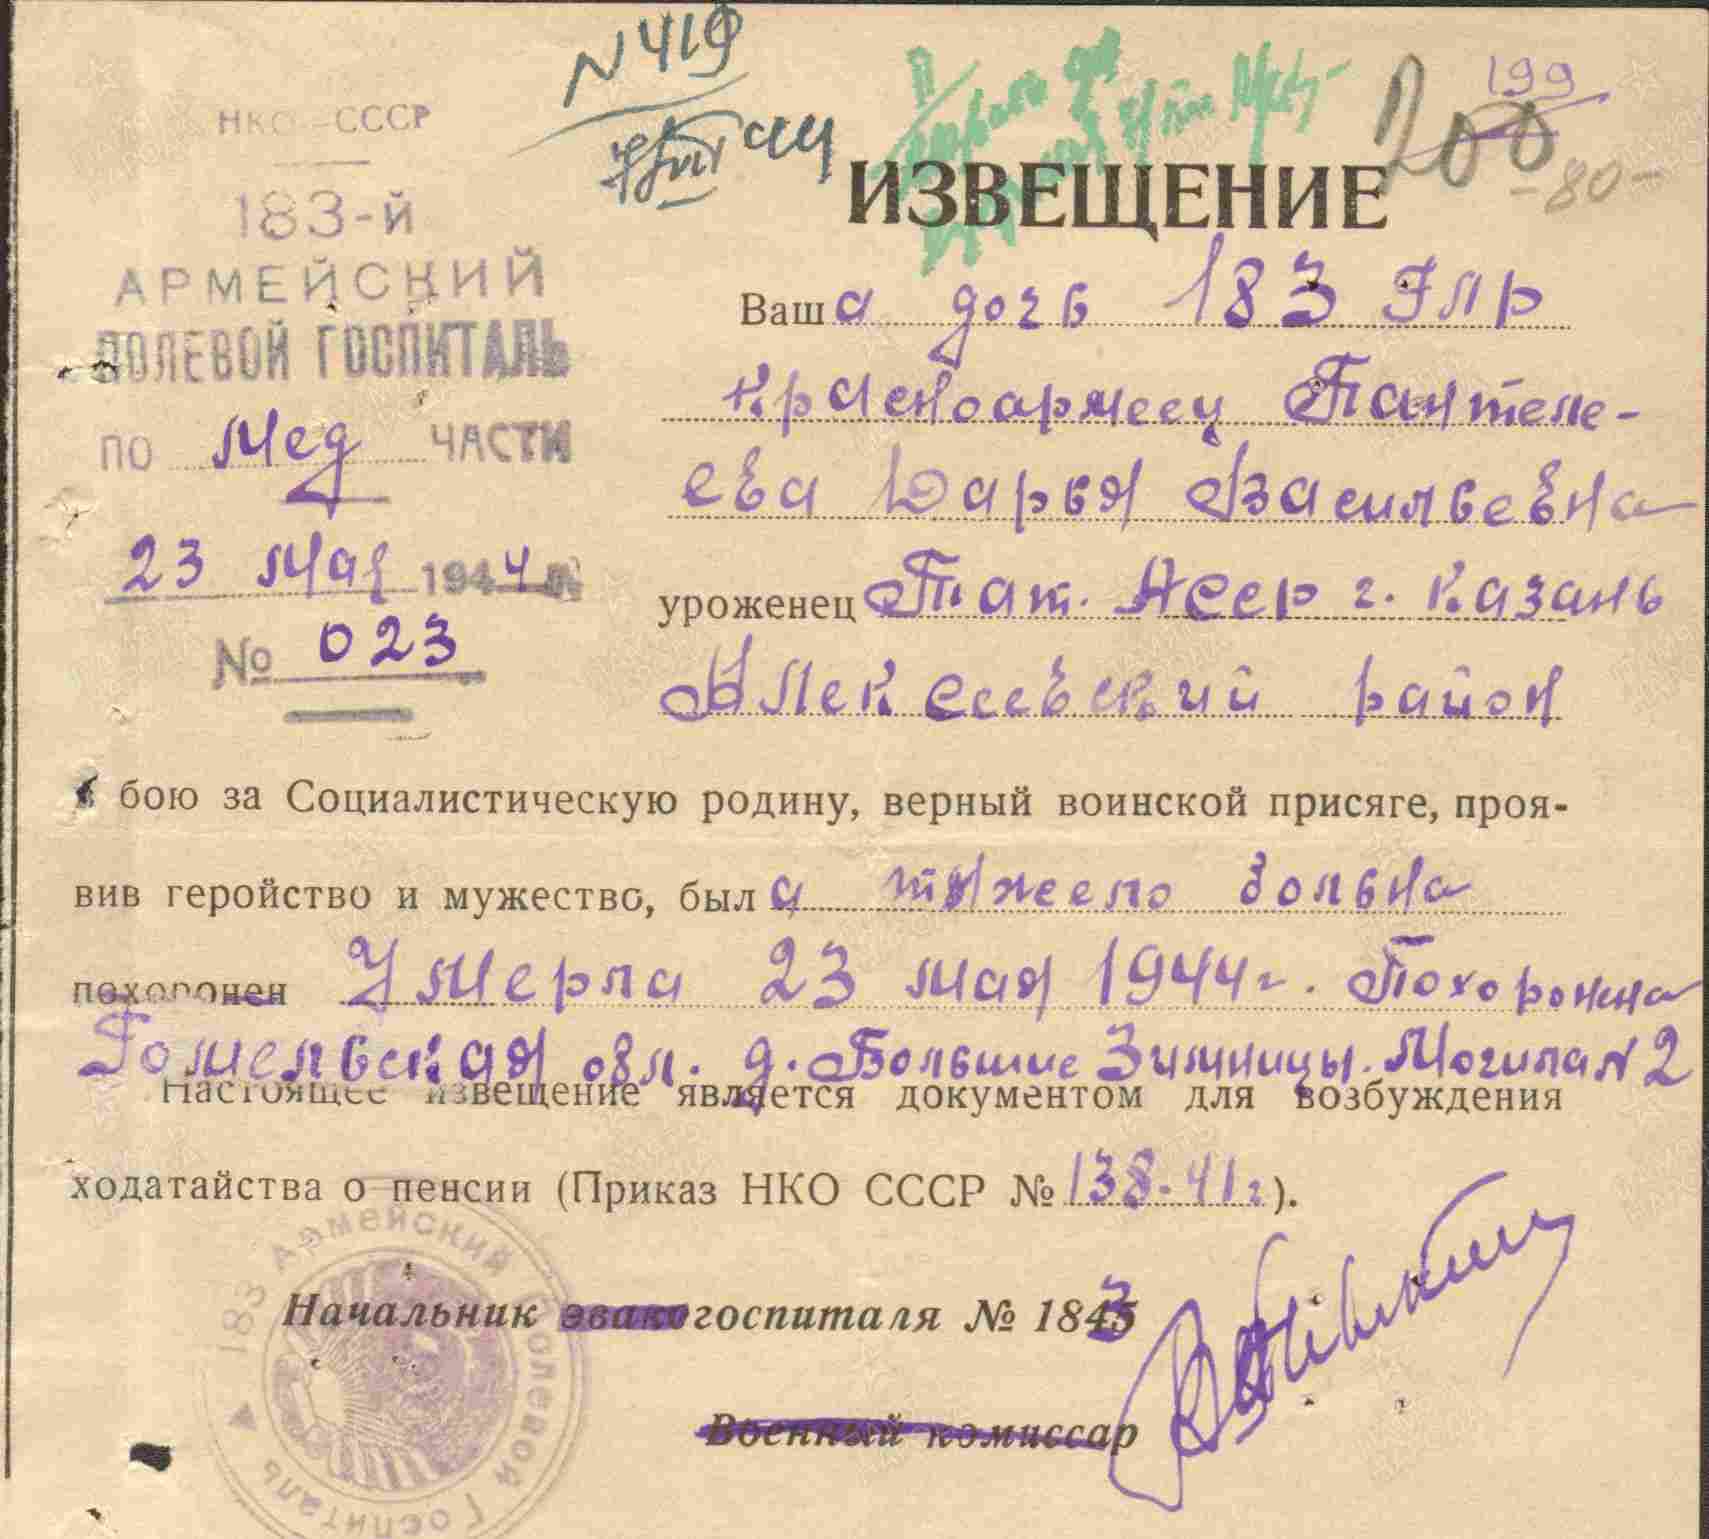 N 419
199
200
-80-
НКО-СССР
183-й
АРМЕЙСКИЙ
ПОЛЕВОЙ ГОСПИТАЛЬ
ПО Мед ЧАСТИ
23 Мая 1944
№ 023
ИЗВЕЩЕНИЕ
Ваша дочь 183
красноармеец Пантеле-
ева Дарья Васильевна
уроженец Тат. Асср г. Казань
Алексеевский район
в бою за Социалистическую родину, верный воинской присяге, проя-
вив геройство и мужество, был а тяжело больна
похоронен Умерла 23 мая 1944г. Похоронена
Гомельская обл. д. Большие Зимницы. Могила N 2
Настоящее извещение является документом для возбуждения
ходатайства о пенсии (Приказ НКО СССР № 138-41г.).
Начальник эвакогоспиталя № 183
Военный комиссар
183 Армейский Полевой Госпиталь